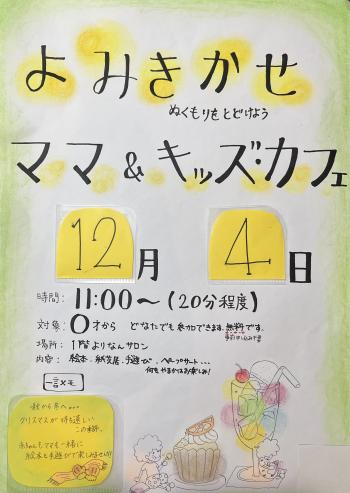 よみきかせ
ぬくもりをとどけよう
ママ&キッズ・カフェ
12月 4日
時間: 11:00～(20分程度)
対象: 0才から どなたでも参加できます。無料です。
場所: 1階よりなんサロン
内容: 絵本、紙芝居、手遊び、ペープサート・・・
何をやるかはお楽しみ!
一言メモ
秋から冬へ・・・
クリスマスが待ち遠しい
この時季。
赤ちゃんもママも一緒に
絵本と手遊びで楽しみませんか